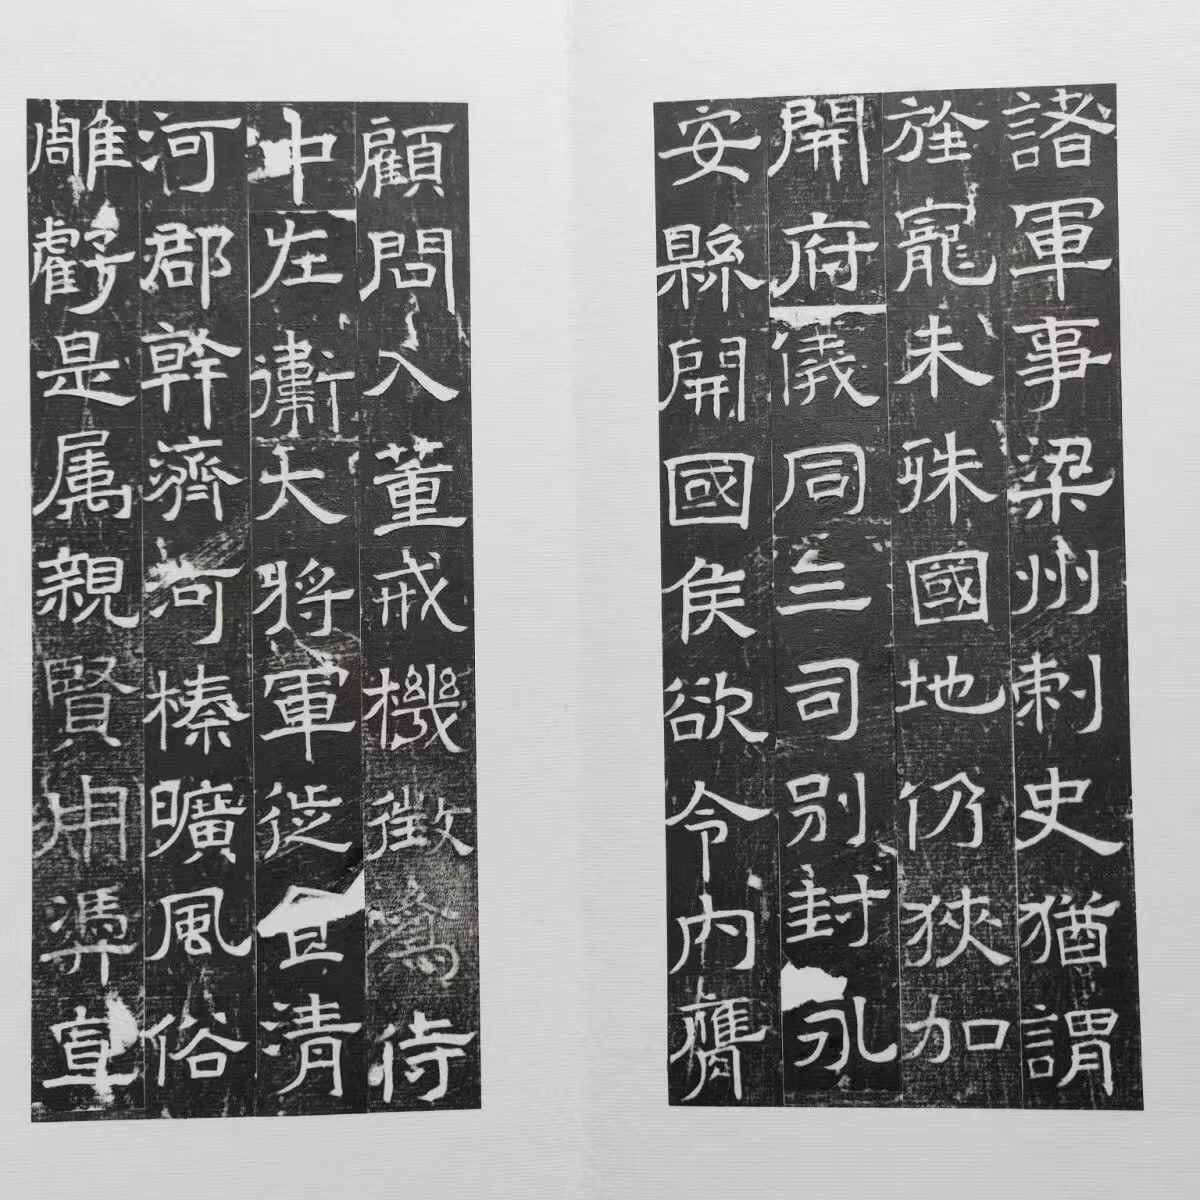 諸軍事梁州刺史猶謂
旌寵未殊國地仍狹加
開府儀同三司別封永
安縣開國侯欲令內膺
顧問入董戒機徵為侍
中左衛大將軍徙清
河郡幹濟河榛曠風俗
雕虧是属親賢用宣